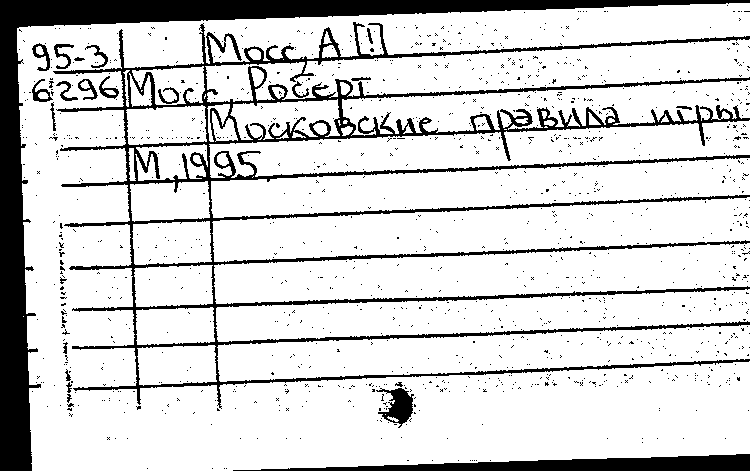 95-3 Мосс, А [!]
6296 Мосс, Роберт
Московские правила игры
М., 1995.